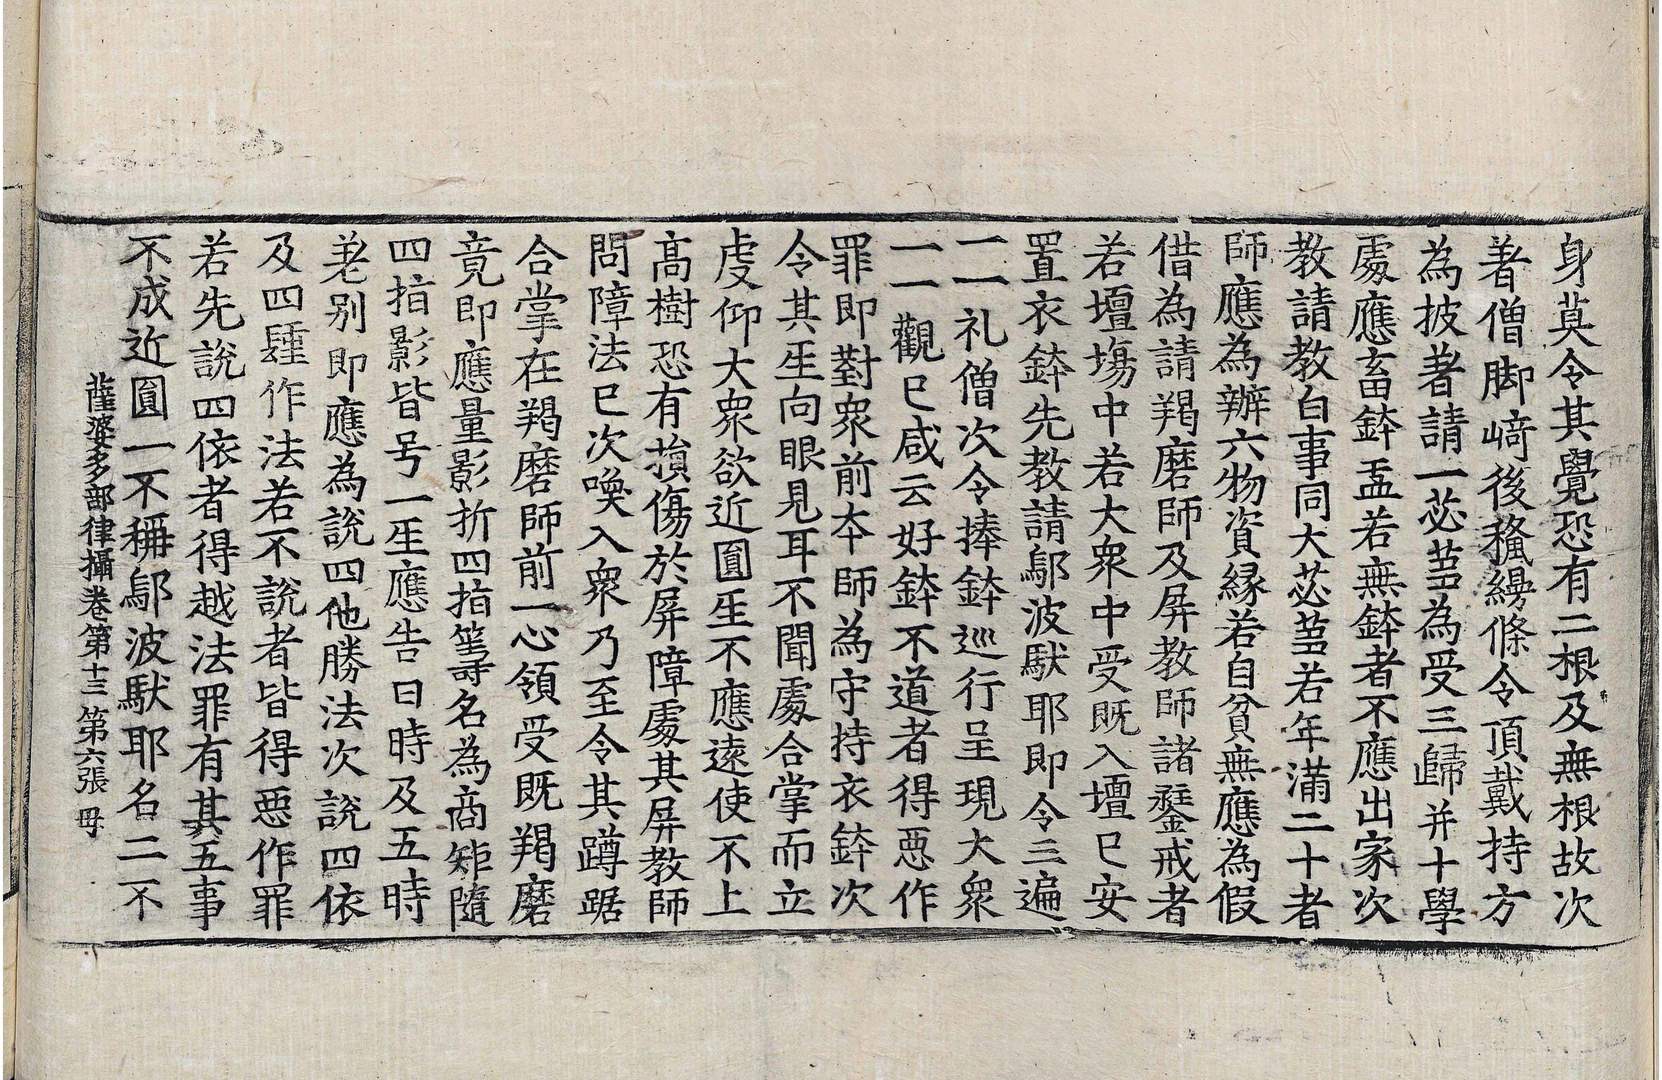 身莫令其覺恐有二根及無根故次
著僧脚㠋後繫縵條令頂戴持方
為披著請一苾芻為受三歸并十學
處應畜鉢盂若無鉢者不應出家次
教請教白事同大苾芻若年滿二十者
師應為辦六物資緣若自貧無應為假
借為請羯磨師及屏教師諸鄔戒者
若壇場中若大衆中受既入壇已安
置衣鉢先教請鄔波馱耶即令三遍
一一礼僧次令捧鉢巡行呈現大衆
一一觀已咸云好鉢不道者得惡作
罪即對衆前夲師為守持衣鉢次
令其至向眼見耳不聞處合掌而立
虔仰大衆欲近圓至不應遠使不上
髙樹恐有損傷於屏障處其屏教師
問障法已次喚入衆乃至令其蹲踞
合掌在羯磨師前一心領受既羯磨
竟即應量影折四指籌名為商矩隨
四指影皆号一生應告日時及五時
差別即應為說四他勝法次說四依
及四種作法若不說者皆得惡作罪
若先說四依者得越法罪有其五事
不成近圓一不稱鄔波馱耶名二不
薩婆多部律攝卷第十三 第六張 毋